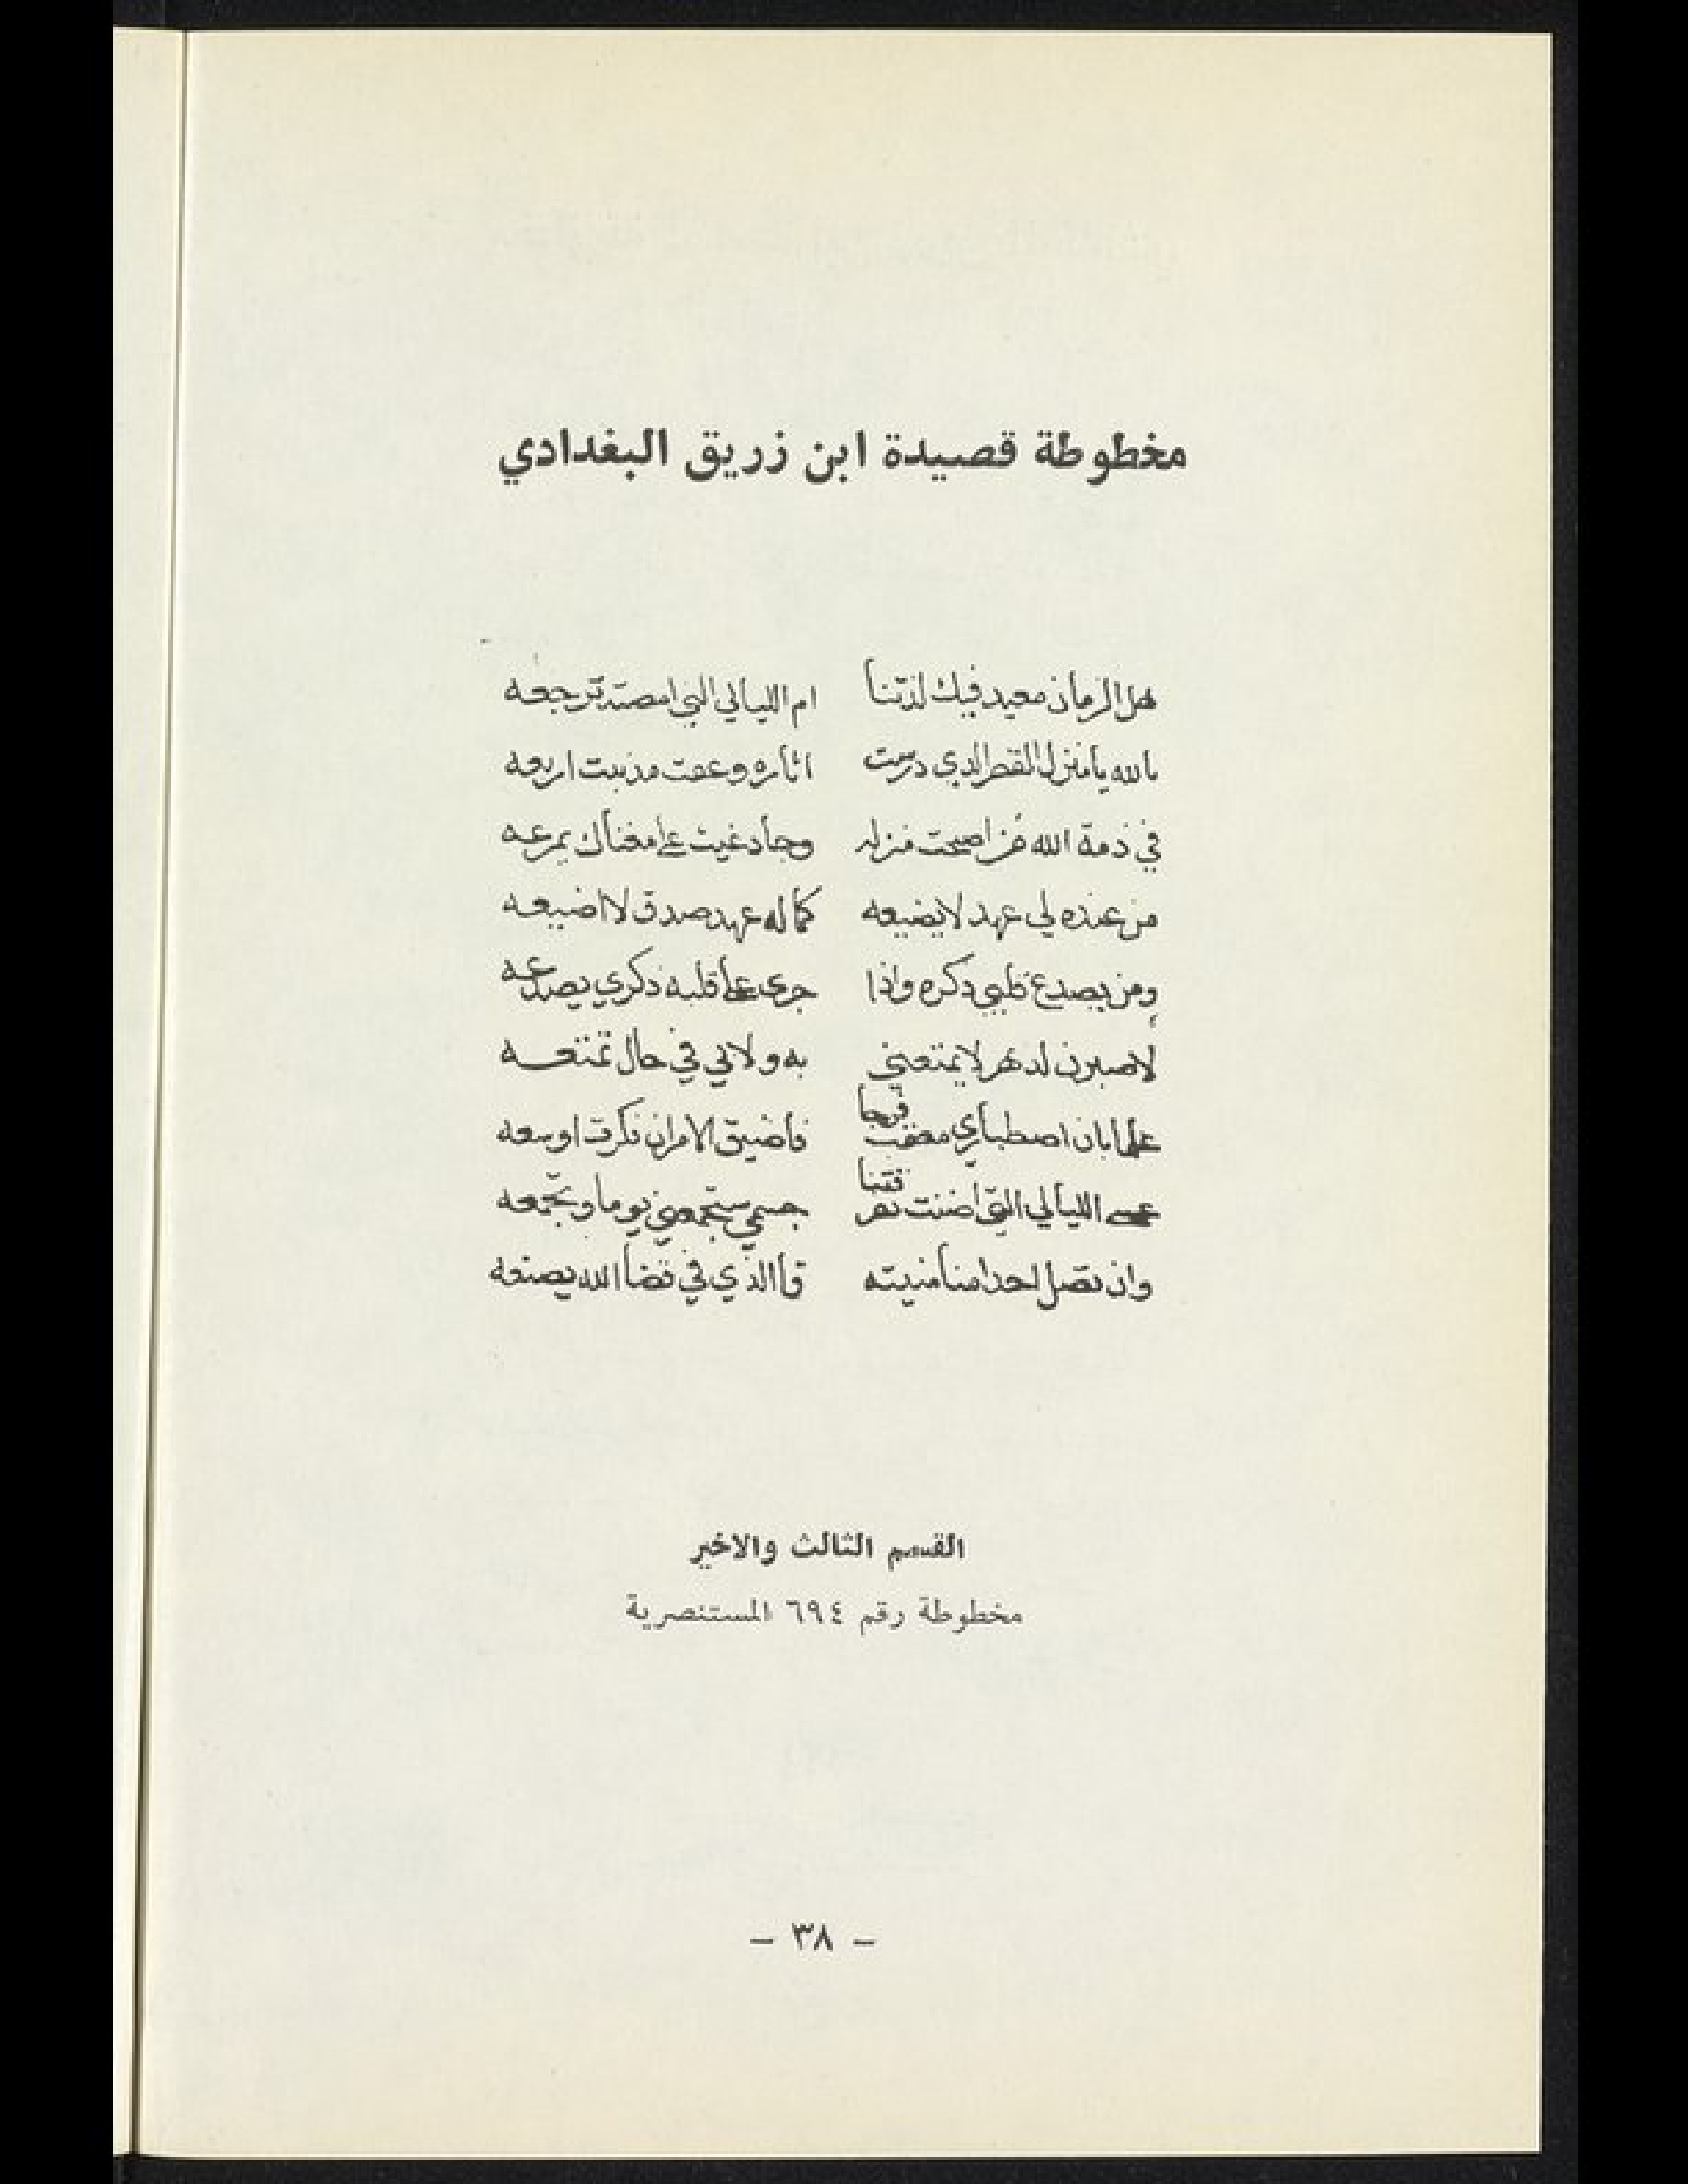 مخطوطة قصيدة ابن زريق البغدادي
هل الزمان معيد فيك لذتنا ام الليالي التي امضته ترجعه
بالله يا منزل القصر الذي درست اثاره وعفت مذ بنت اربعه
في ذمة الله من اصبحت منزله وجاد غيث على مغناك يمرعه
من عنده لي عهد لا يضيعه كما له عهد صدق لا اضيعه
ومن يصدع قلبي ذكره واذا جرى على قلبه ذكري يصدعه
لاصبرن لدهر لا يمتعني به ولا بي في حال تمتعه
علما بان اصطباري معقب فرجا فاضيق الامر ان فكرت اوسعه
عسى الليالي التي اضنت بفرقتنا جسمي ستجمعني يوما وتجمعه
وان تصل احدا منا منيته فما الذي في قضا الله يصنعه
القسم الثالث والاخير
مخطوطة رقم ٦٩٤ المستنصرية
– ٣٨ –